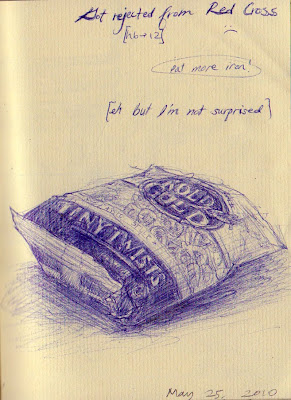 Got rejected from Red Cross
[hb < 12]
eat more iron!
[eh but I'm not surprised]
ROLD
GOLD
TINY TWISTS
May 25, 2010